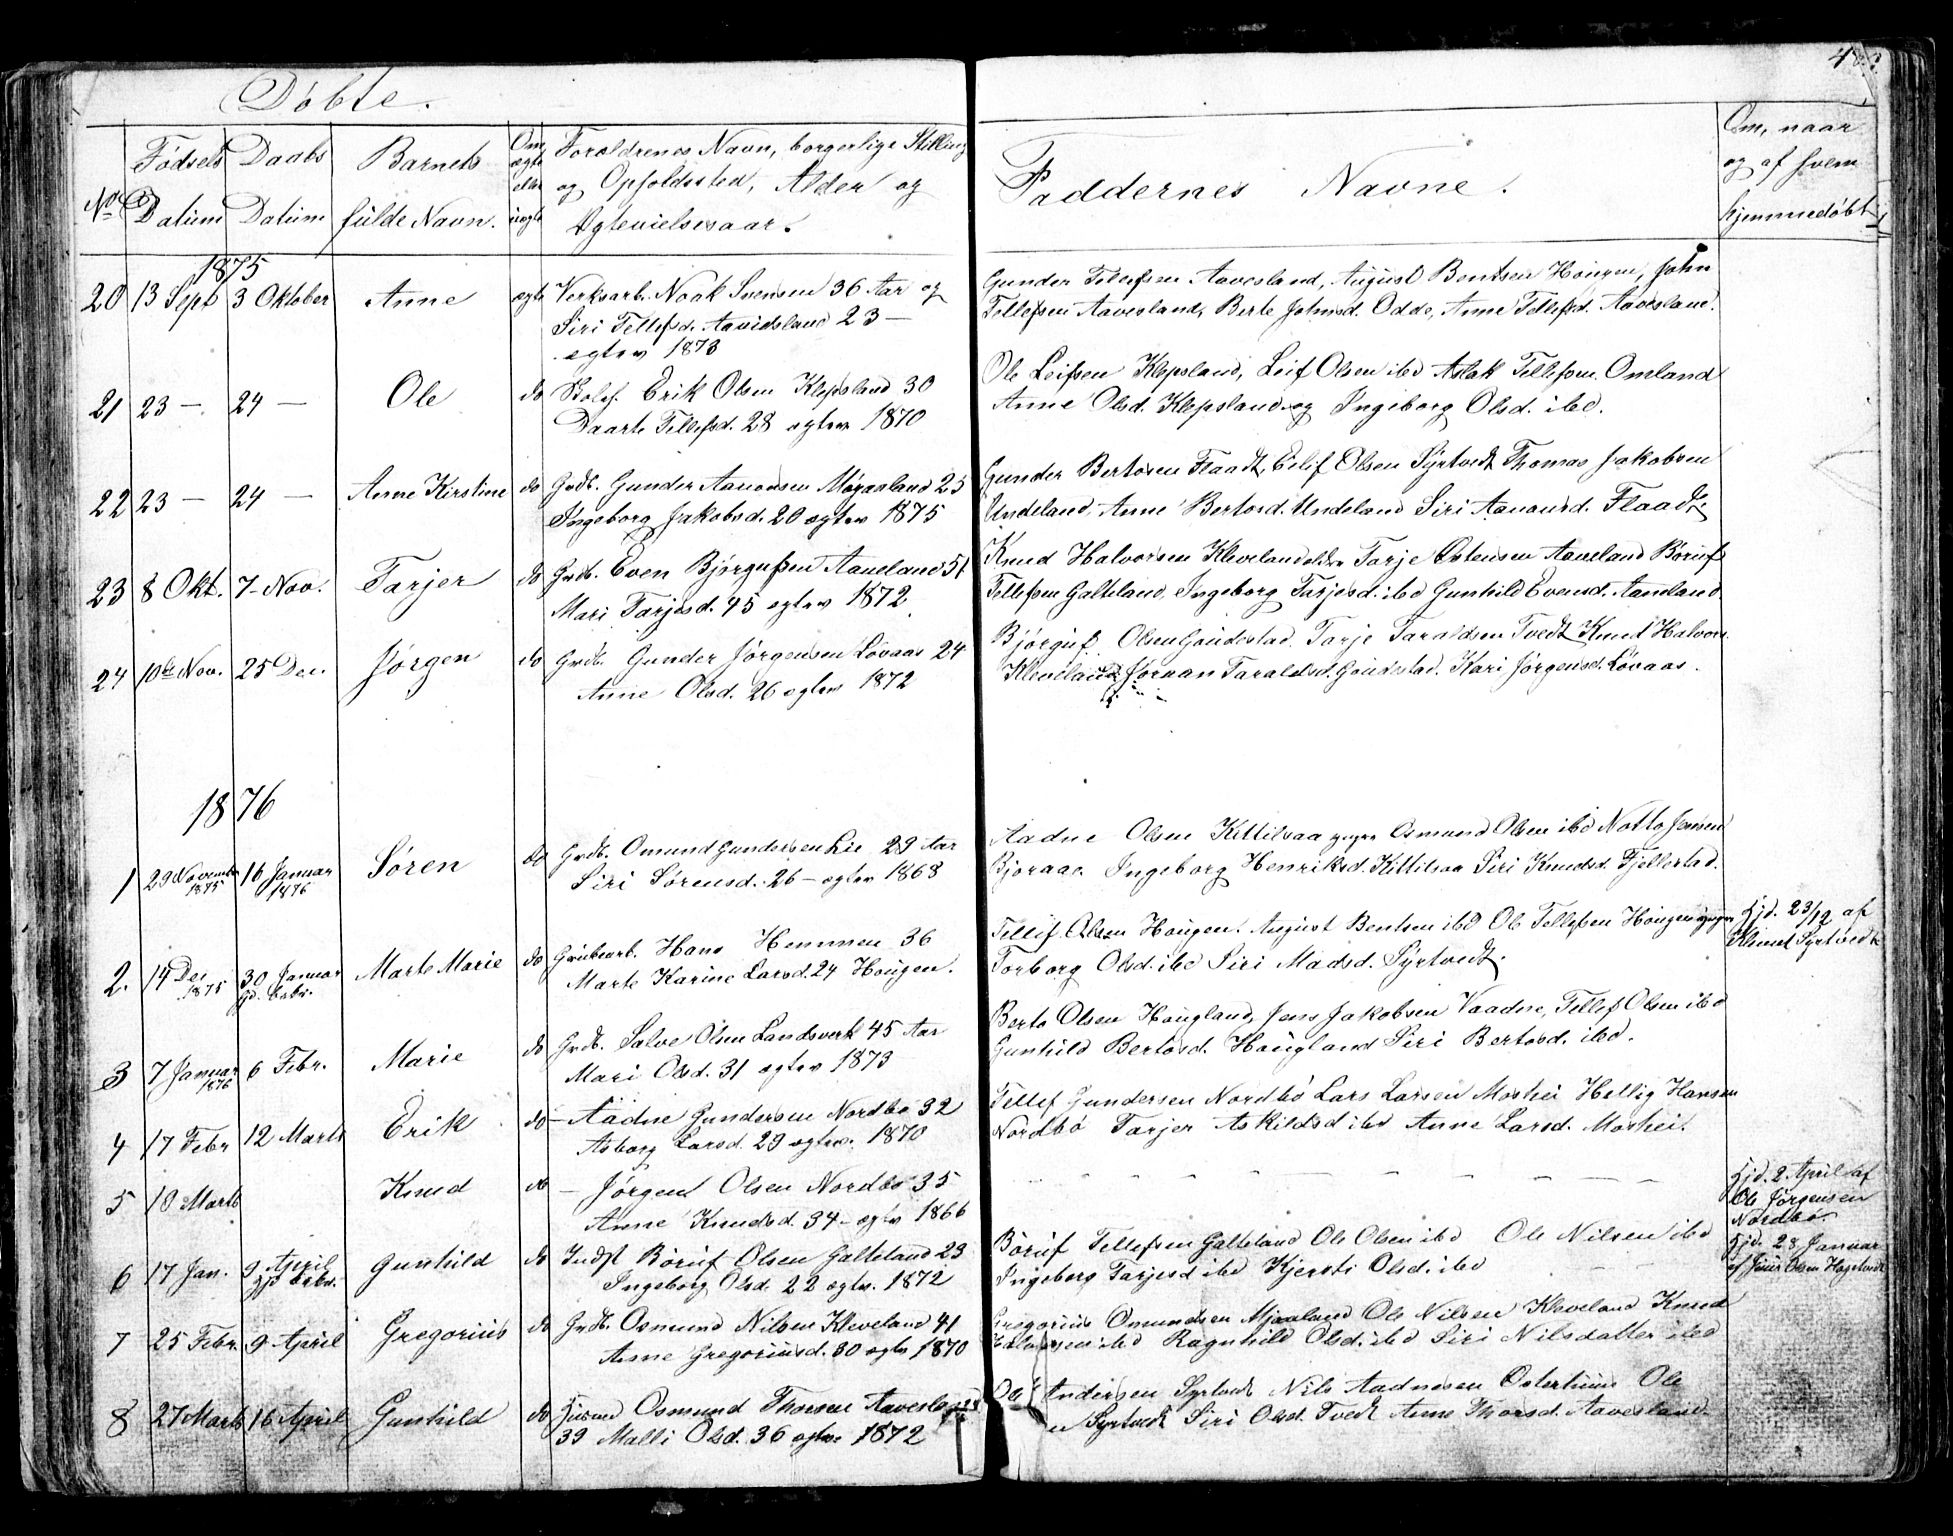 Döbte.
No
Fødsels Datum
Daabs Datum
Barnets fulde Navn.
Om ægte eller uægte
Forældrenes Navn, borgerlige Stilling
og Opholdssted, Alder og
Ægtevielsesaar.
Faddernes Navne.
Om, naar
og af hvem
hjemmedøbt
1875
20 13 Sept 3 Oktober Anne ægte Verksarb. Noak Svensen 36 Aar og
Siri Tellefsd. Aavidsland 23 —
egtev 1873
Gunder Tellefsen Aavesland, August Bentsen Hougen, John
Tellefsen Aavesland, Berte Johnsd. Odde, Anne Tellefsd. Aavesland.
21 23 — 24 — Ole do Erik Olsen Klepsland 30
Daarte Tellefsd. 28 egtev 1870
Ole Leifsen Klepsland, Leif Olsen ibd Aslak Tellefsen Omland
Anne Olsd. Klepsland og Ingeborg Olsd. ibd.
22 23 — 24 — Anne Kirstine do Grdb. Gunder Aanonsen Møgaaland 25
Ingeborg Jakobsd. 20 ægtev 1875
Gunder Bertosen Flaadt, Eilif Olsen Syrtvedt Thomas Jakobsen
Undeland, Anne Bertosd. Undeland Siri Aanonsd. Flaadt.
23 8 Okt. 7 Nov. Tarjer do Grdb. Even Bjørgufsen Aaneland 51
Mari Tarjesd. 45 egtev 1872
Knud Halvorsen Kleveland Tarje Ostensen Aaneland Børuf
Tellefsen Galteland, Ingeborg Tarjesd. ibd Gunhild Evensd. Aaneland
24 10de Nov. 25 Dec. Jørgen do Grdb. Gunder Jørgensen Løvaas 24
Anne Olsd. 26 egtev 1872
Bjørguf Olsen Gaudestad Tarje Taraldsen Tvedt Knud Halvors.
Kleveland, Joraan Taraldsd. Gaudestad. Kari Jørgensd. Løvaas.
1876
1 29 November 1875 16 Januar 1876 Søren do Grdb. Omund Gundersen Lie 29 Aar
Siri Sørensd. 26 — egtev 1868
Aadne Olsen Kittilsaa yngre Osmund Olsen ibd Notto Jensen
Bjoraae Ingeborg Henriksd. Kittilsaa Siri Knudsd. Fjellestad.
2. 14 Dec 1875 30 Januar hjd. bebr. Marte Marie do Grubearb. Hans Hemmen 36
Marte Karine Larsd. 24 Hougen.
Tellif Olsen Hougen. August Bentsen ibd Ole Tellefsen Hougen yngre
Torborg Olsd. ibd Siri Madsd. Syrtvedt.
hjd. 23/12 af
Knud Syrtvedt
3 7 Januar 1876 6 Febr. Marie do Grdb. Salve Olsen Landsverk 45 Aar
Mari Olsd. 31 egtev 1873
Berto Olsen Hougland, Jens Jakobsen Vaadne, Tellef Olsen ibd
Gunhild Bertosd. Hougland Siri Bertosd. ibd.
4 17 Febr 12 Marts Erik do — Aadne Gundersen Nordbø 32
Asborg Larsd. 29 egtev. 1870
Tellef Gundersen Nordbø Lars Larsen Moshei Hellig Hansen
Nordbø Tarjer Askildsd ibd Anne Larsd. Moshei.
5 10 Marts Knud do — Jørgen Olsen Nordbø 35
Anne Knudsd. 34 — egtv 1866
hjd. 2. April af
Ole Jørgensen
Nordbø.
6 17 Jan. 9 April hjd bebr. Gunhild do Indst Børuf Olsen Galteland 23
Ingeborg Olsd. 22 egtv. 1872
Børuf Tellefsen Galteland Ole Olsen ibd Ole Nilsen ibd
Ingeborg Tarjesd ibd Kjersti Olsd. ibd
hjd. 28 Januar
af Olsen
7 25 Febr. 9 April Gregorius do Grdb. Osmund Nilsen Kleveland 41
Anne Gregoriusd. 30 egtv 1870
Gregorius Omundsen Mjaaland Ole Nilsen Kleveland Knud
Halvorsen ibd Ragnhild Olsd. ibd Siri Nilsdatter ibd
8 27 Marts 16 April Gunhild do Husmd Osmund Thorsen Aavesland
39 Malli Olsd. 36 egtv. 1872
Ole Andersen Syrtvedt Nils Aadnesen Ole
Syrtvedt Siri Olsd. Tvedt Anne Thorsd. Aavesland